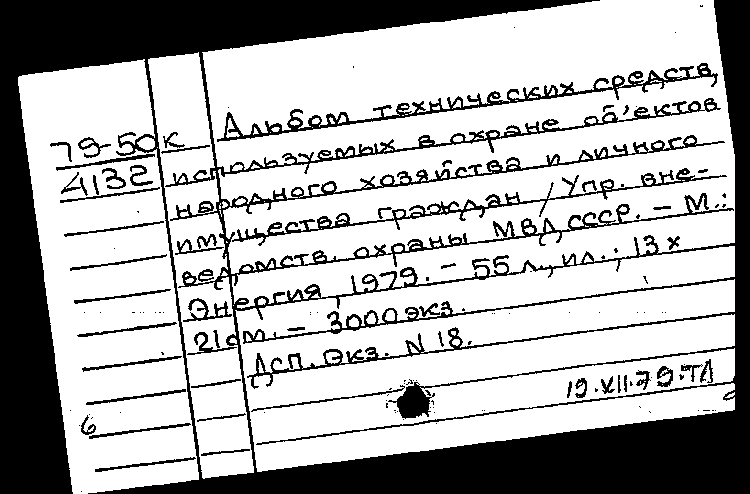 79-50к Альбом технических средств,
4132 используемых в охране об'ектов
народного хозяйства и личного
имущества граждан / Упр. вне-
ведомств. охраны МВД СССР. - М.:
Энергия, 1979. - 55 л., ил.; 13 х
21 см. - 3000 экз.
Дсп. Экз. N 18.
19.XII.79.ТЛ
6